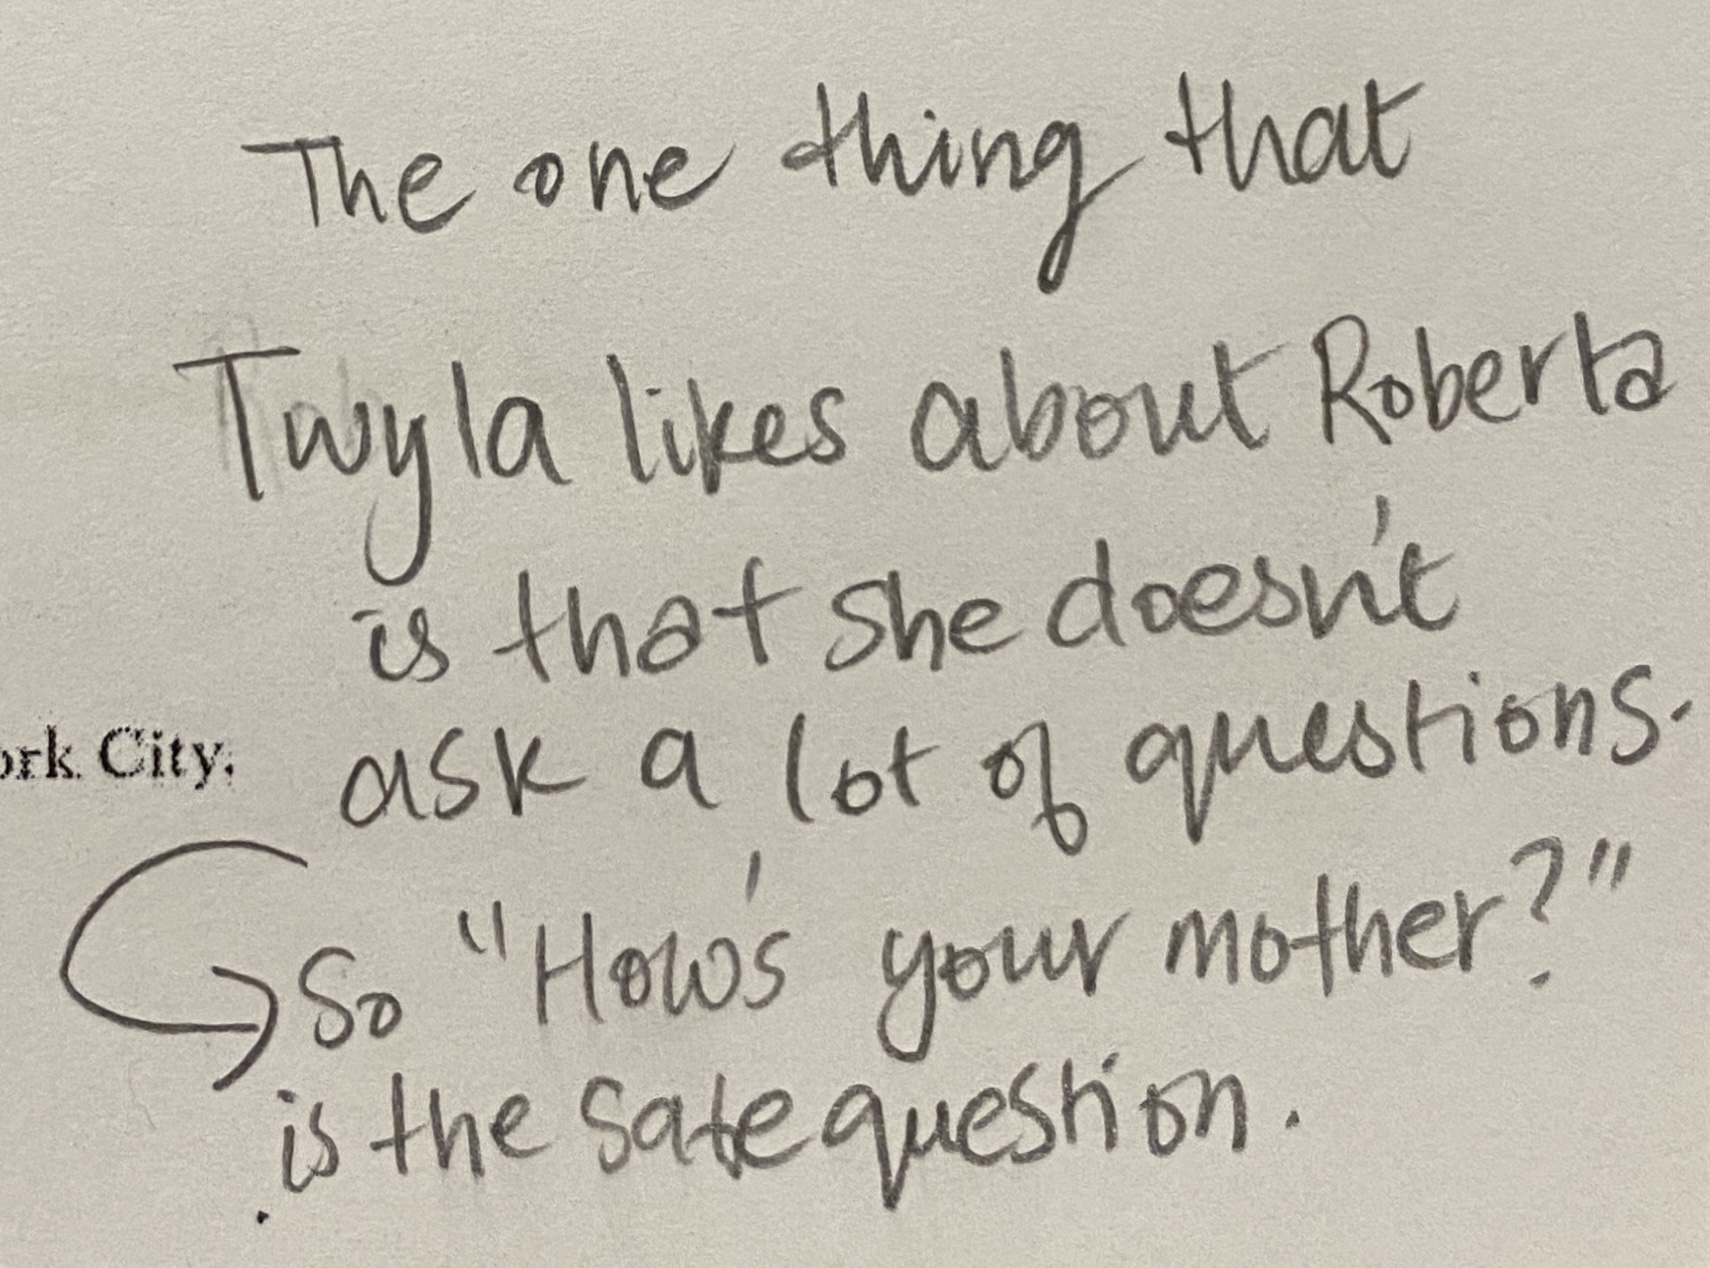 The one thing that
Twyla likes about Roberta
is that she doesn't
ask a lot of questions.
ork City.
So "How's your mother?"
is the safe question.